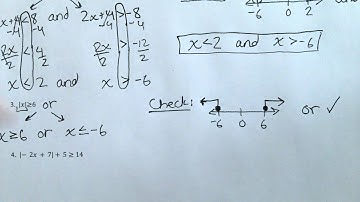 x+4 < 8 and 2x+4 > -8
-4 -4 -4 -4
2x/2 < 4/2 2x/2 > -12/2
x < 2 and x > -6
-6 0 2
x<2 and x>-6
3. |x|≥6 or
x≥6 or x≤-6
Check:
-6 0 6
or ✓
4. |- 2x + 7| + 5 ≥ 14